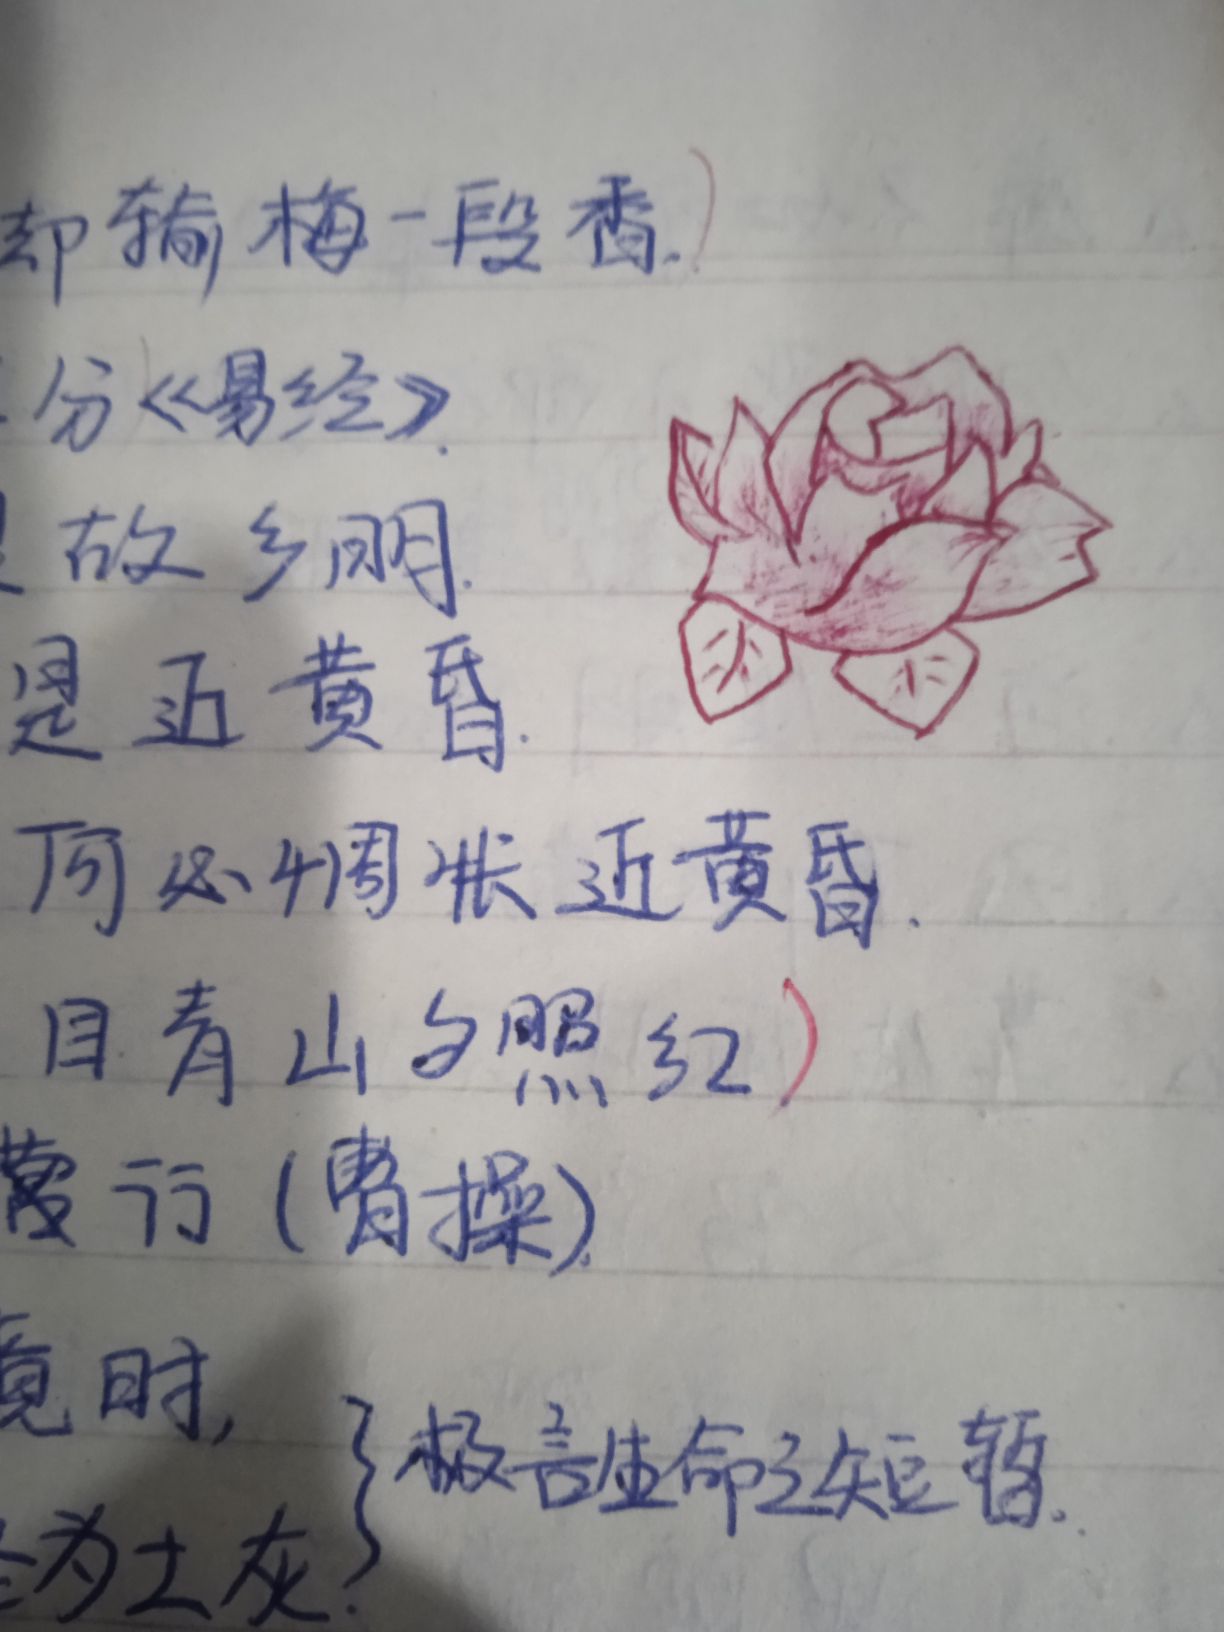 却输梅一段香.)
分《易经》.
故乡明.
是近黄昏.
何必惆怅近黄昏.
目青山夕照红)
行(曹操).
竟时,
极言生命之短暂.
为土灰.